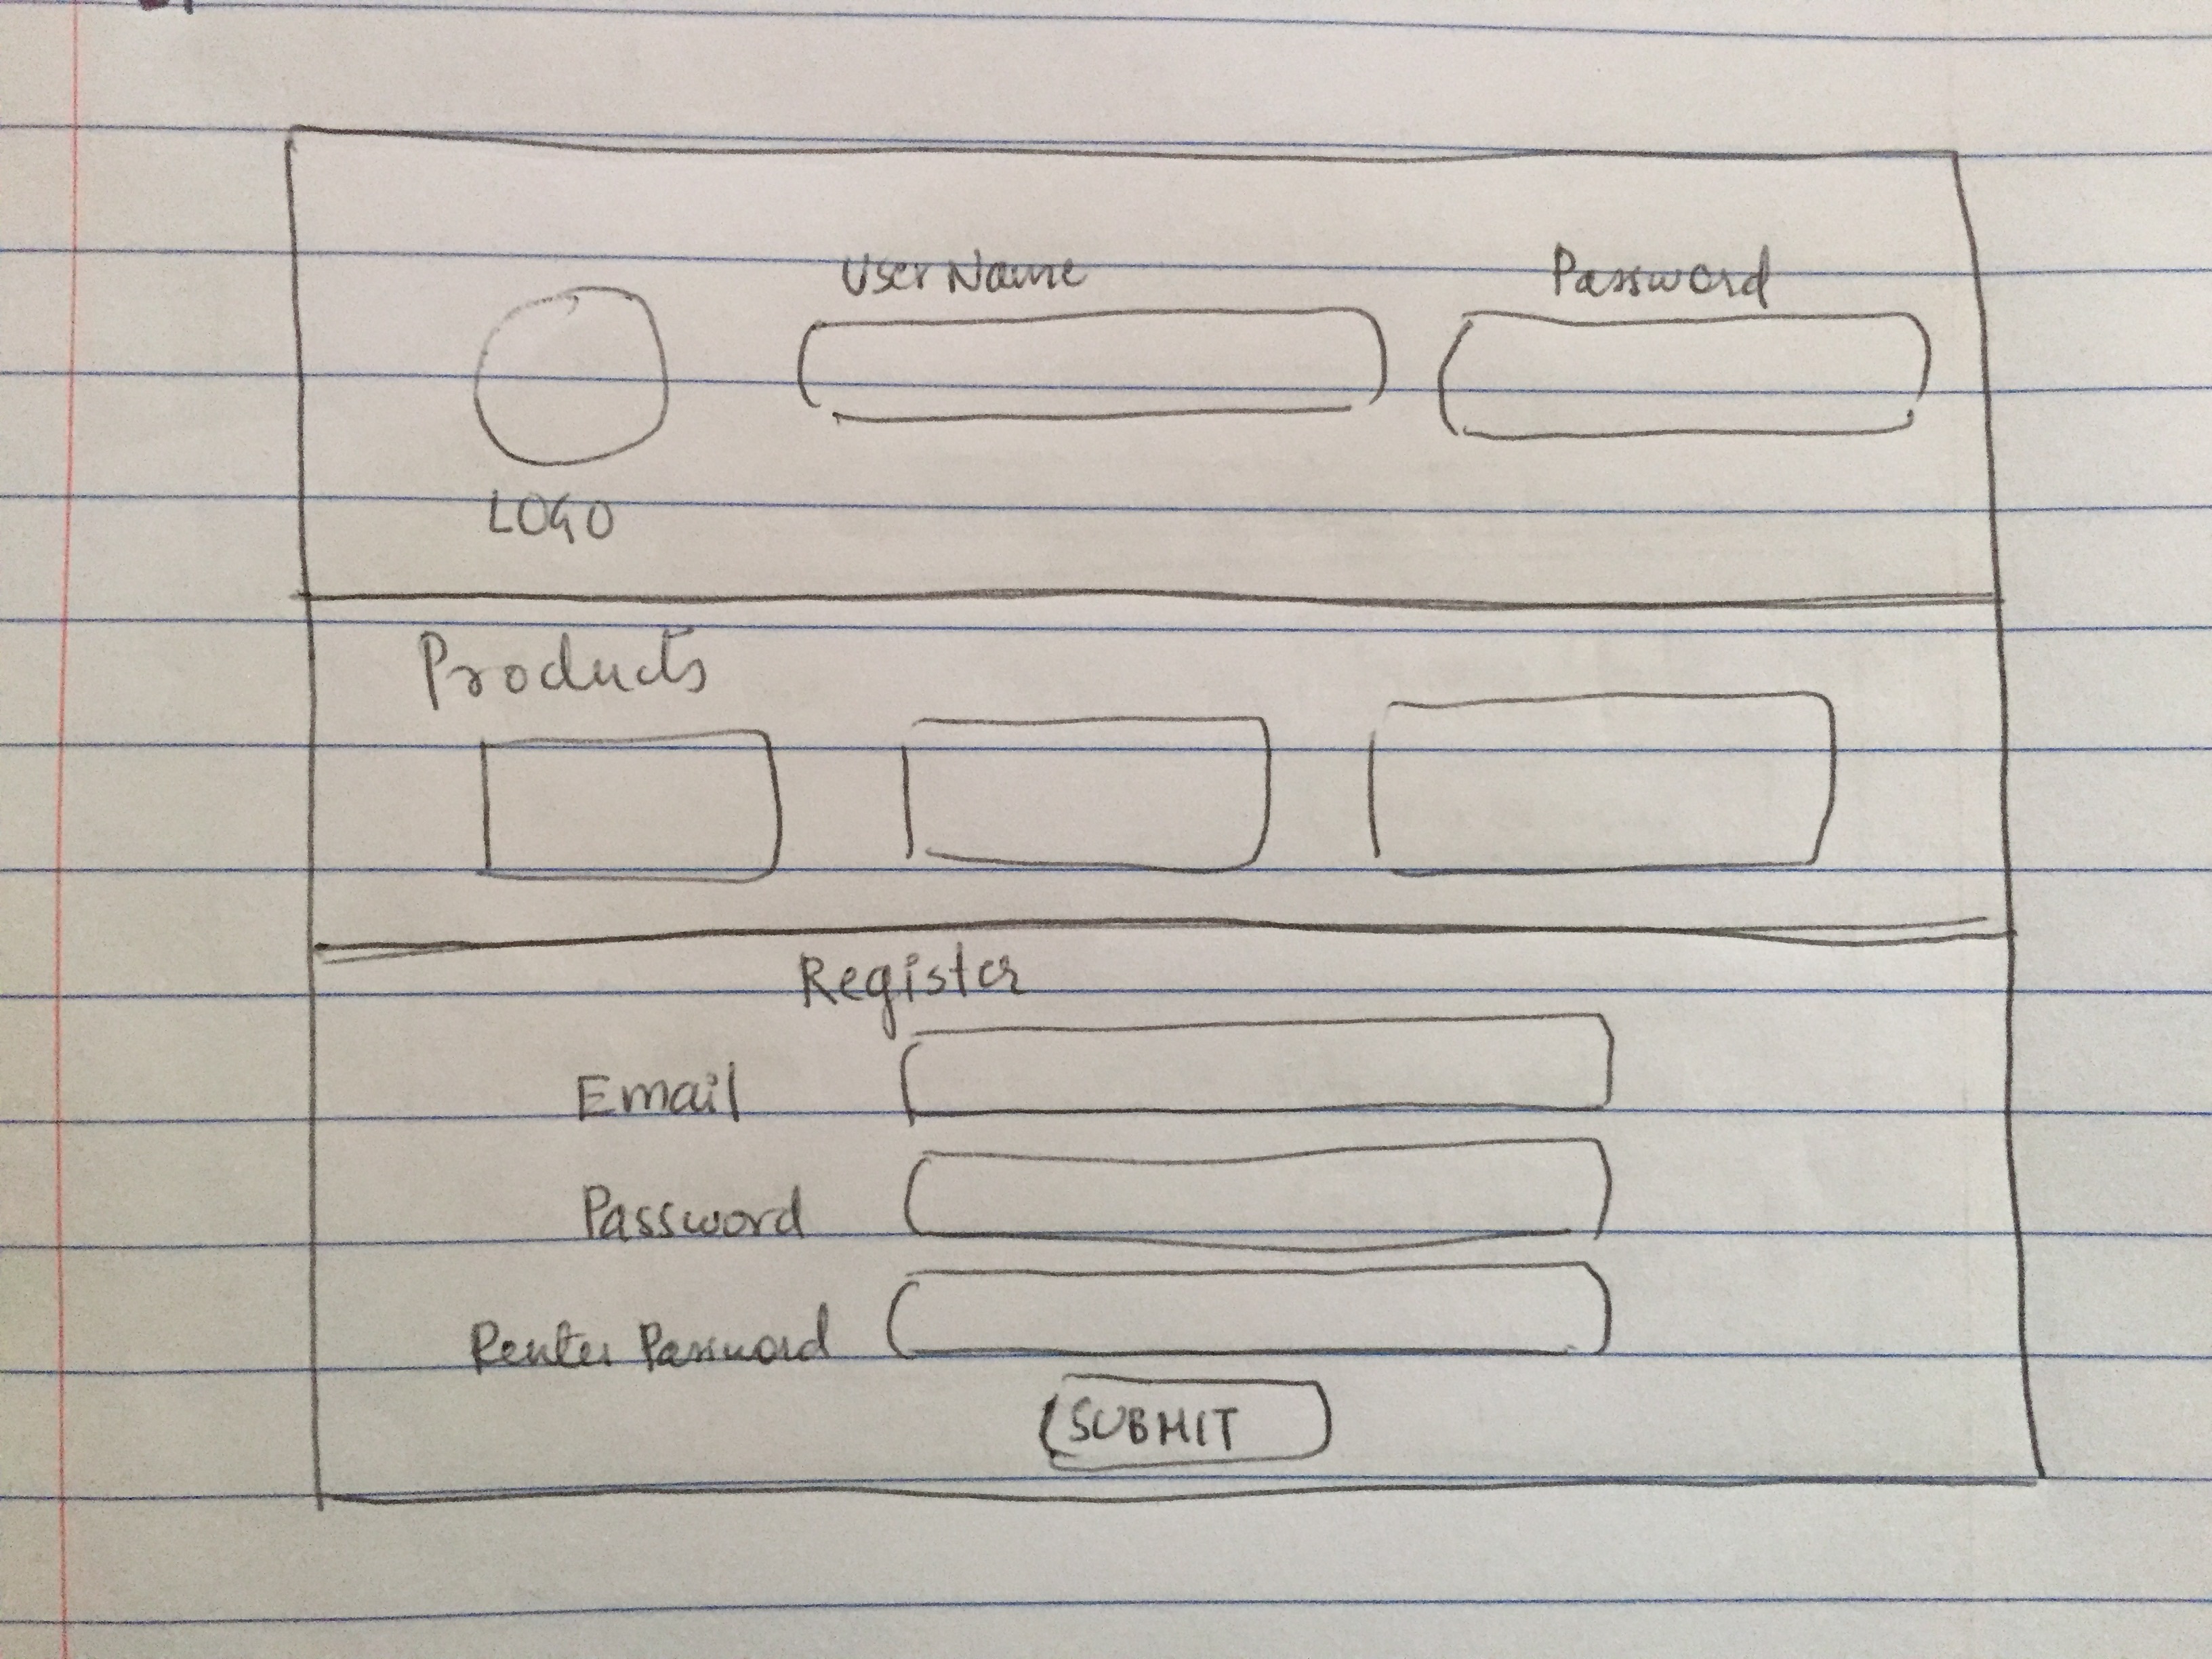 UserName
Password
LOGO
Products
Register
Email
Password
Renter Password
SUBMIT